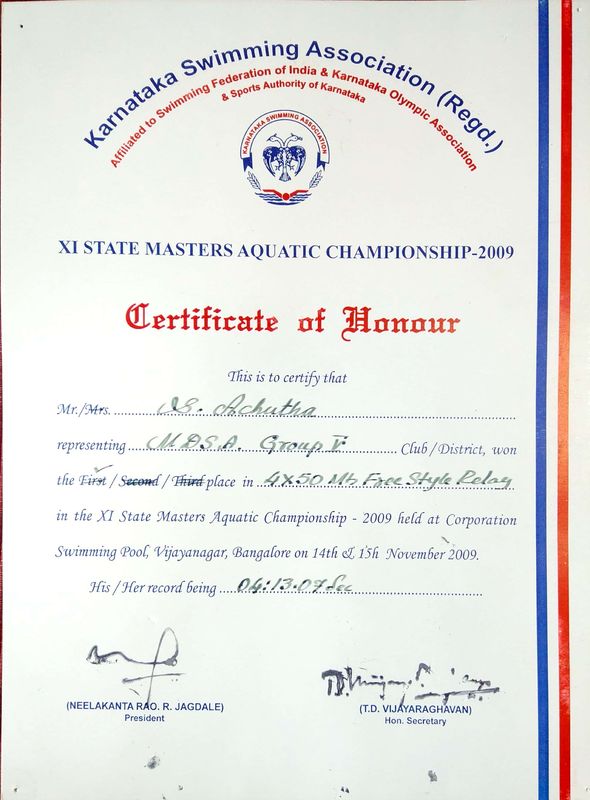 Karnataka Swimming Association (Regd.)
Affiliated to Swimming Federation of India & Karnataka Olympic Association
& Sports Authority of Karnataka
KARNATAKA SWIMMING ASSOCIATION
XI STATE MASTERS AQUATIC CHAMPIONSHIP-2009
Certificate of Honour
This is to certify that
Mr./Mrs. S. Achutha
representing M.D.S.A. Group V Club / District, won
the First / Second / Third place in 4x50 Mts Free Style Relay
in the XI State Masters Aquatic Championship - 2009 held at Corporation
Swimming Pool, Vijayanagar, Bangalore on 14th & 15h November 2009.
His / Her record being 04:13.07 Sec
(NEELAKANTA RAO. R. JAGDALE)
President
(T.D. VIJAYARAGHAVAN)
Hon. Secretary